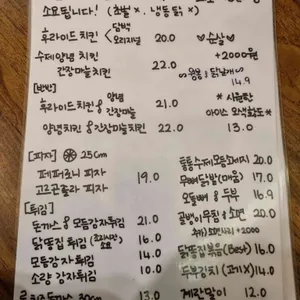 소요됩니다! (초벌 x. 냉동닭 x)
후라이드치킨 < 담백 오리지널 20.0
수제양념치킨
간장마늘치킨 22.0
♡순살♡
+2000원
14.9
[반반]
후라이드치킨 & 양념
간장마늘 21.0
양념치킨 & 간장마늘치킨 22.0
* 사클란
13.0
[피자] 25cm
페퍼로니 피자
고르곤졸라 피자 19.0
[튀김]
돈까스 & 모듬감자튀김 21.0
닭똥집 튀김 16.0
모듬감자 튀김 14.0
소량 감자튀김 10.0
30cm 13.0
통통수제모듬소세지 20.0
무뼈닭발(매움) 17.0
오돌뼈 & 두부 16.9
골뱅이무침 & 소면 20.0
추가) 소면사리 +2000
닭똥집볶음(Best) 16.0
두부김치 (고기X) 14.0
계란말이 12.0